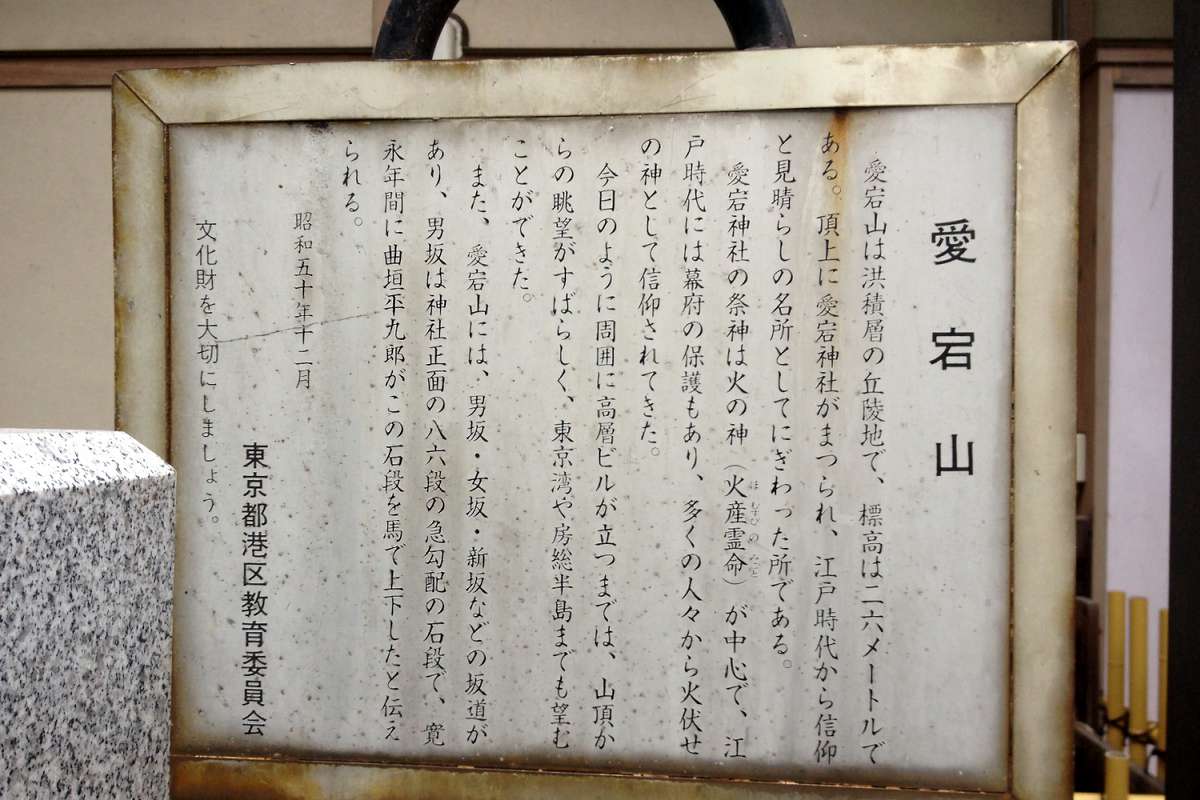 愛宕山
愛宕山は洪積層の丘陵地で、標高は二六メートルで
ある。頂上に愛宕神社がまつられ、江戸時代から信仰
と見晴らしの名所としてにぎわった所である。
愛宕神社の祭神は火の神（火産霊命）が中心で、江
戸時代には幕府の保護もあり、多くの人々から火伏せ
の神として信仰されてきた。
今日のように周囲に高層ビルが立つまでは、山頂か
らの眺望がすばらしく、東京湾や房総半島までも望む
ことができた。
また、愛宕山には、男坂・女坂・新坂などの坂道が
あり、男坂は神社正面の八六段の急勾配の石段で、寛
永年間に曲垣平九郎がこの石段を馬で上下したと伝え
られる。
昭和五十年十二月
東京都港区教育委員会
文化財を大切にしましょう。